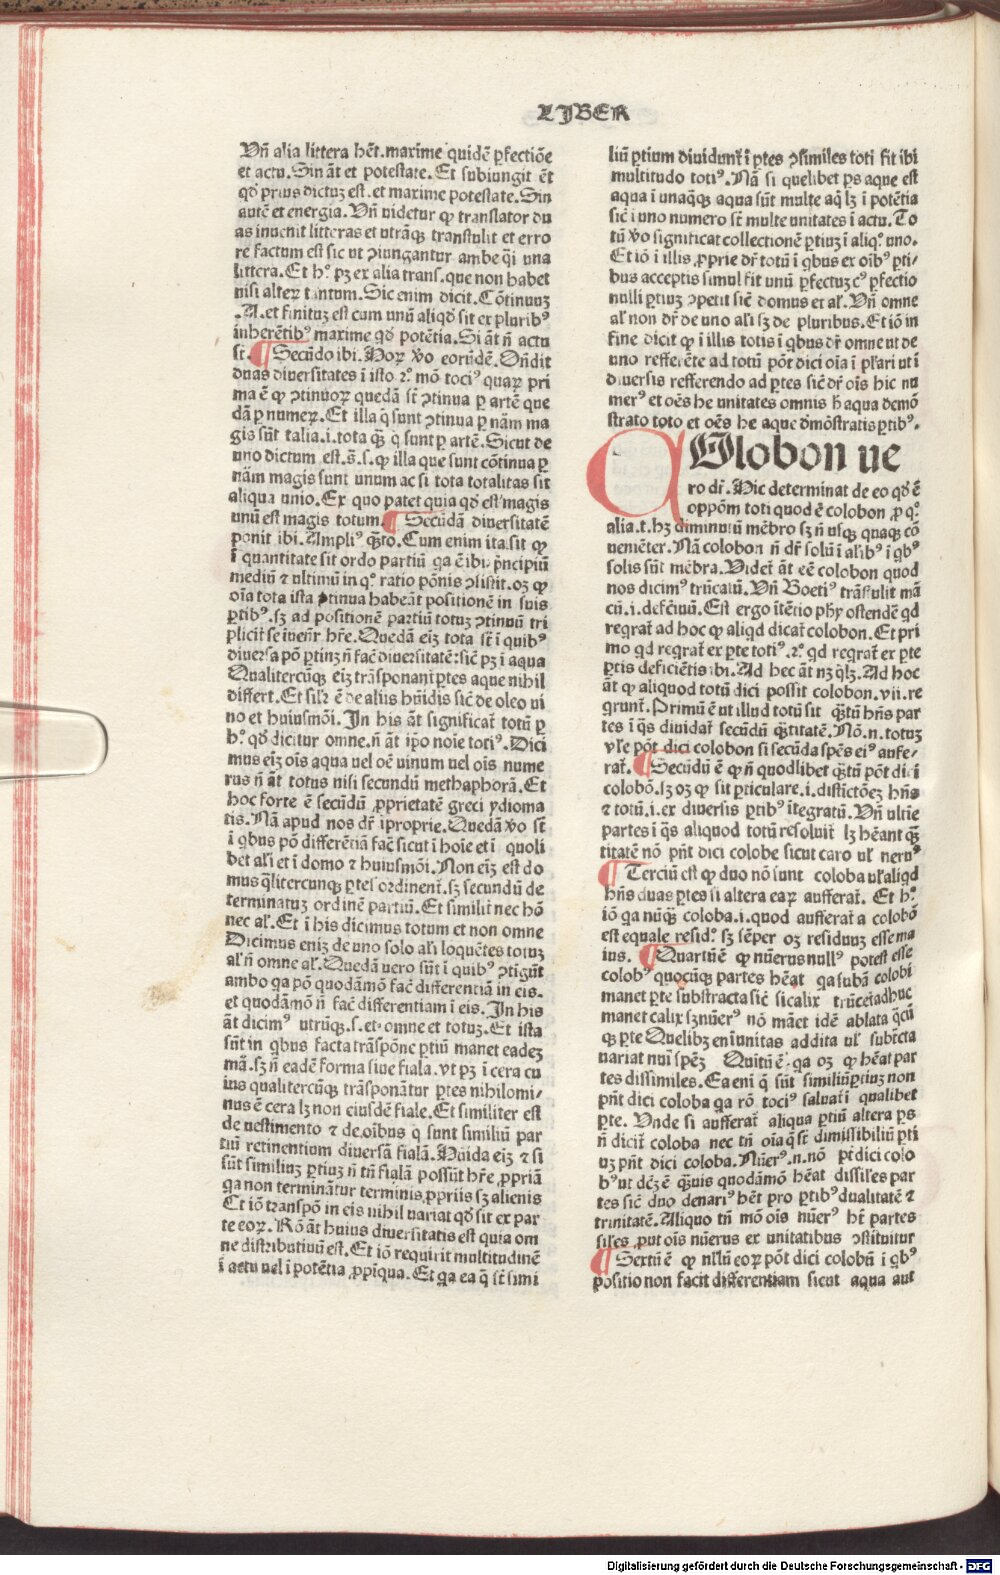 LIBER
Vñ alia littera hẽt. maxime quidẽ ꝑfectiõe
et actu. Sin ãt et potestate. Et subiungit ẽt
qď prius dictuꝫ est. et maxime potestate. Sin
autẽ et energia. Vñ uidetur ꝙ translator du
as inuenit litteras et utrãqꝫ transtulit et erro
re factum est sic ut ↄiungantur ambe q̃i una
littera. Et h.ꝰ pꝫ ex alia trans. que non habet
nisi alteꝝ tantum. Sic enim dicit. Cõtinuuꝫ
.A. et finituꝫ est cum unũ aliqď sit ex pluribꝰ
inherẽtibꝰ maxime qď potẽtia. Si ãt ñ actu
st̃. ¶ Secũdo ibi. Hoꝝ ꝟo eorũdẽ. Oñdit
duas diuersitates ĩ isto .2.ꝰ mõ tociꝰ quaꝝ pri
ma ẽ ꝙ ↄtinuoꝝ quedã st̃ ↄtinua ꝑ artẽ que
dã ꝑ numeꝝ. Et illa q̃ sunt ↄtinua ꝑ nãm ma
gis sũt talia .i. tota qꝫ̃ q̃ sunt ꝑ artẽ. Sicut de
uno dictum est .s̃.s. ꝙ illa que sunt cõtinua ꝑ
nãm magis sunt unum ac si tota totalitas sit
aliqua unio. Ex quo patet quia qď est magis
unũ est magis totum. ¶ Secũdã diuersitatẽ
ponit ibi. Ampliꝰ qꝫ̃to. Cum enim ita sit ꝙ
ĩ quantitate sit ordo partiũ ga ẽ ibi pñcipiũ
mediũ ⁊ ultimũ in q.ꝰ ratio põnis ↄsistit. oꝫ ꝙ
oĩa tota ista ↄtinua habeãt positionẽ in suis
ꝑtibꝰ. sꝫ ad positionẽ partiũ totuꝫ ↄtinuũ tri
plicit̃ se inueñr hr̃e. Quedã eiꝫ tota st̃ ĩ quibꝰ
diuersa põ ꝑtinꝫ ñ fac̃ diuersitatẽ: sic̃ pꝫ ĩ aqua
Qualitercũqꝫ eiꝫ trãsponant̃ ꝑtes aque nihil
differt. Et sil̃r ẽ de aliis hũidis sic̃ de oleo ui
no et huiusmõi. In his ãt significat̃ totũ ꝑ
h.ꝰ qď dicitur omne. ñ ãt ip̃o noĩe totiꝰ. Dici
mus eiꝫ oĩs aqua uel oẽ uinum uel oĩs nume
rus ñ ãt totus nisi secundũ methaphorã. Et
hoc forte ẽ secũdũ ꝓprietatẽ greci ydioma
tis. Nã apud nos dr̃ ĩproprie. Quedã ꝟo st̃
ĩ gbus põ differẽtiã fac̃ sicut ĩ hoĩe et ĩ quoli
bet al̃i et ĩ domo ⁊ huiusmõi. Non eiꝫ est do
mus q̃litercunqꝫ ꝑtes ordinent̃. sꝫ secundũ de
terminatuꝫ ordinẽ partiũ. Et similit̃ nec hõ
nec al̃. Et ĩ his dicimus totum et non omne
Dicimus eniꝫ de uno solo al̃i loquẽtes totuꝫ
al̃ ñ omne al̃. Quedã uero sũt ĩ quibꝰ ↄtigũt
ambo ga põ quodãmõ fac̃ differentiã in eis.
et quodãmõ ñ fac̃ differentiam ĩ eis. In his
ãt dicimꝰ utrũqꝫ .s. et omne et totuꝫ. Et ista
sũt in gbus facta trãspõne ꝑtiũ manet eadeꝫ
mã. sꝫ ñ eadẽ forma siue fiala. vt pꝫ ĩ cera cu
ius qualitercũqꝫ trãsponãtur ꝑtes nihilomi/
nus ẽ cera lꝫ non eiusdẽ fiale. Et similiter est
de uestimento ⁊ de oĩbus q̃ sunt similiũ par
tiũ retinentium diuersã fialã. Hũida eiꝫ ⁊ si
sũt similiuꝫ ꝑtiuꝫ ñ tñ fialã possũt hr̃e ꝓpriã
ga non terminãtur terminis ꝓpriis sꝫ alienis
Et iõ transpõ in eis nihil uariat qď sit ex par
te eoꝝ. Rõ ãt huius diuersitatis est quia om
ne distributiuũ est. Et iõ requirit multitudinẽ
ĩ actu uel ĩ potẽtia ꝓpiqua. Et ga ea q̃ st̃ simi
liũ ꝑtium diuidunt̃ ĩ ꝑtes ↄsimiles toti fit ibi
multitudo totiꝰ. Nã si quelibet ꝑs aque est
aqua ĩ unaq̃qꝫ aqua sũt multe aq̃ lꝫ ĩ potẽtia
sic̃ ĩ uno numero st̃ multe unitates ĩ actu. To
tũ ꝟo significat collectionẽ ꝑtiuꝫ ĩ aliq.ꝰ uno.
Et iõ ĩ illis ꝓprie dr̃ totũ ĩ gbus ex oĩbꝰ ꝑti/
bus acceptis simul fit unũ ꝑfectuꝫ cꝰ ꝑfectio
nulli ꝑtiuꝫ ↄpetit sic̃ domus et al̃. Vñ omne
al̃ non dr̃ de uno al̃i sꝫ de pluribus. Et iõ in
fine dicit ꝙ ĩ illis totis ĩ gbus dr̃ omne ut de
uno refferẽte ad totũ põt dici oĩa ĩ pl̃ari ut ĩ
diuersis refferendo ad ꝑtes sic̃ dr̃ oĩs hic nu
merꝰ et oẽs he unitates omnis h̃ aqua demõ
strato toto et oẽs he aque dmõstratis ꝑtibꝰ.
COlobon ue
ro dr̃. Hic determinat de eo qď ẽ
oppõm toti quod ẽ colobon ꝓ q.ꝰ
alia .t. hꝫ diminutũ mẽbro sꝫ ñ usqꝫ quaqꝫ cõ
ueniẽter. Nã colobon ñ dr̃ solũ ĩ al̃ibꝰ ĩ gbꝰ
solis sũt mẽbra. Videt̃ ãt eẽ colobon quod
nos dicimꝰ trũcatũ. Vñ Boetiꝰ trãstulit mã
cũ .i. defc̃iuũ. Est ergo ĩtẽtio phỹ ostendẽ gd
regrat̃ ad hoc ꝙ aligd dicat̃ colobon. Et pri
mo gd regrat̃ ex ꝑte totiꝰ .2.ꝰ gd regrat̃ ex ꝑte
ꝑtis deficiẽtis ibi. Ad hec ãt nꝫ q̃lꝫ. Ad hoc
ãt ꝙ aliquod totũ dici possit colobon .vii. re
grunt̃. Primũ ẽ ut illud totũ sit qꝫ̃tũ hñs par
tes ĩ q̃s diuidat̃ secũdũ qꝫ̃titatẽ. Nõ .n. totuꝫ
vl̃e põt dici colobon si secũda spẽs eiꝰ aufe/
rat̃. ¶ Secũdũ ẽ ꝙ ñ quodlibet qꝫ̃tũ põt dici
colobõ. sꝫ oꝫ ꝙ sit ꝑticulare .i. distĩctõeꝫ hñs
⁊ totũ .i. ex diuersis ꝑtibꝰ ĩtegratũ. Vñ ultie
partes ĩ q̃s aliquod totũ resoluit̃ lꝫ hẽant qꝫ̃
titatẽ nõ pñt dici colobe sicut caro ul̃ neruꝰ
¶ Terciũ est ꝙ duo nõ sunt coloba ul̃ aligd
hñs duas ꝑtes si altera eaꝝ aufferat̃. Et h.ꝰ
iõ ga nũqꝫ̃ coloba .i. quod aufferat̃ a colobõ
est equale resid.ꝰ sꝫ sẽper oꝫ residuuꝫ esse ma
ius. ¶ Quartũ ẽ ꝙ nũerus nullꝰ potest esse
colobꝰ quocũqꝫ partes hẽat ga subã colobi
manet ꝑte substracta sic̃ si calix trũcet̃ adhuc
manet calix sꝫ nũerꝰ nõ mãet idẽ ablata q̃cũ
qꝫ ꝑte Quelibꝫ eni unitas addita ul̃ subt̃cta
uariat nũi spẽꝫ Quĩtũ ẽ ga oꝫ ꝙ hẽat par
tes dissimiles. Ea eni q̃ sũt similiũ ꝑtiuꝫ non
pñt dici coloba ga rõ tociꝰ saluat̃ ĩ qualibet
ꝑte. Vnde si aufferat̃ aliqua ꝑtiũ altera ꝑs
ñ dicit̃ coloba nec tñ oĩa q̃ st̃ dimissibiliũ ꝑti
uꝫ pñt dici coloba. Nũerꝰ .n. nõ põt dici colo
bꝰ ut dc̃ꝫ ẽ qꝫ̃uis quodãmõ hẽat dissiles par
tes sic̃ duo denariꝰ hẽt pro ꝑtibꝰ dualitatẽ ⁊
trinitatẽ. Aliquo tñ mõ oĩs nũerꝰ ht̃ partes
sil̃es ꝓut oĩs nũerus ex unitatibus ↄstituitur
¶ Sextũ ẽ ꝙ nl̃lũ eoꝝ põt dici colobũ ĩ gbꝰ
positio non facit differentiam sicut aqua aut
Digitalisierung gefördert durch die Deutsche Forschungsgemeinschaft - DFG